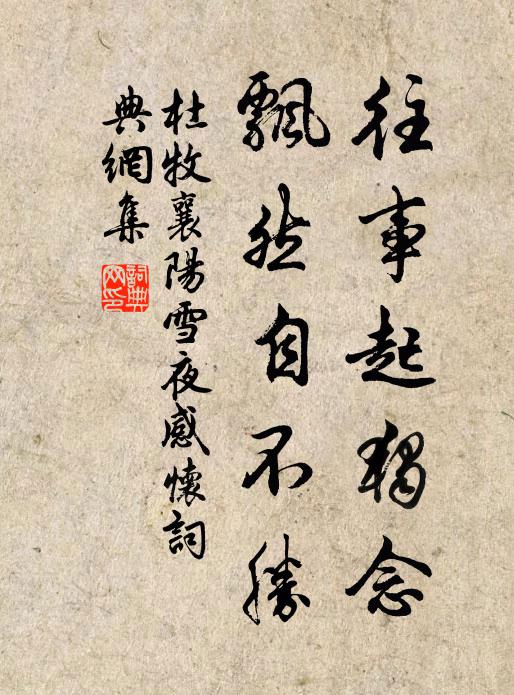 往事起獨念
飄然自不勝
杜牧襄陽雪夜感懷詞
典網集
詞典
网印